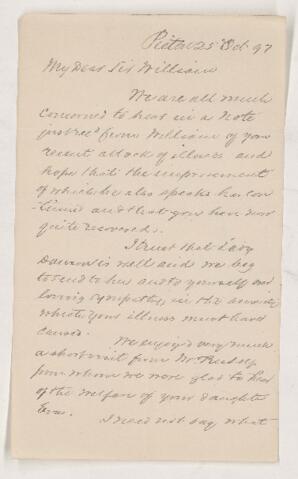 Pictou 25 Oct. 97
My Dear Sir William
We are all much
concerned to hear in a note
just recd from William of your
recent attack of illness and
hope that the improvement
of which he also speaks has con
tinued and that you have now
quite recovered.
I trust that Lady
Dawson is well and we beg
to send to her and to yourself our
loving sympathy, in the anxiety
which your illness must have
caused.
We enjoyed very much
a short visit from Mr
from whom we were glad to hear
of the welfare of your daughter
Eva.
I need not say what